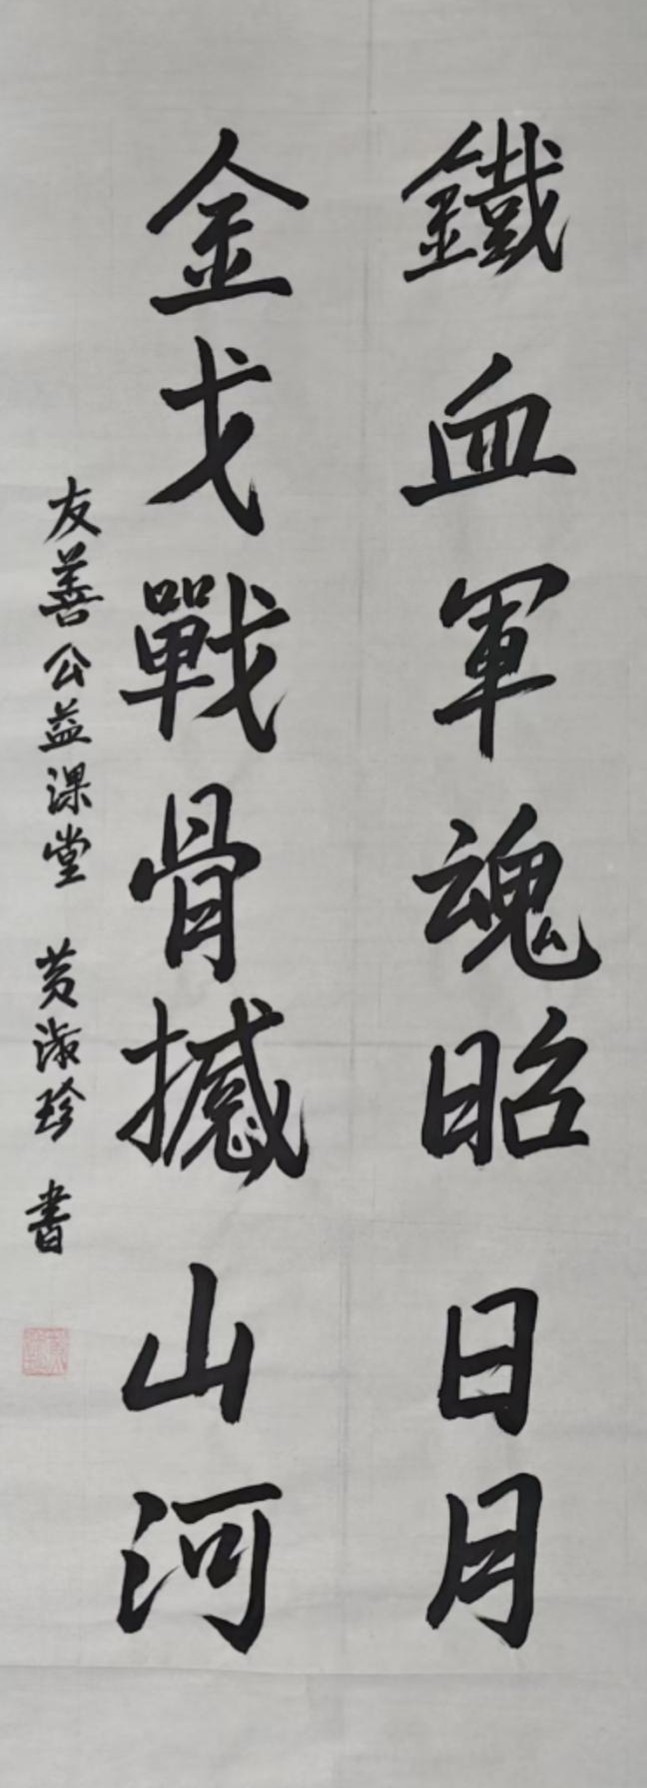 鐵血軍魂昭日月
金戈戰骨撼山河
友善公益課堂 黄淑珍 書